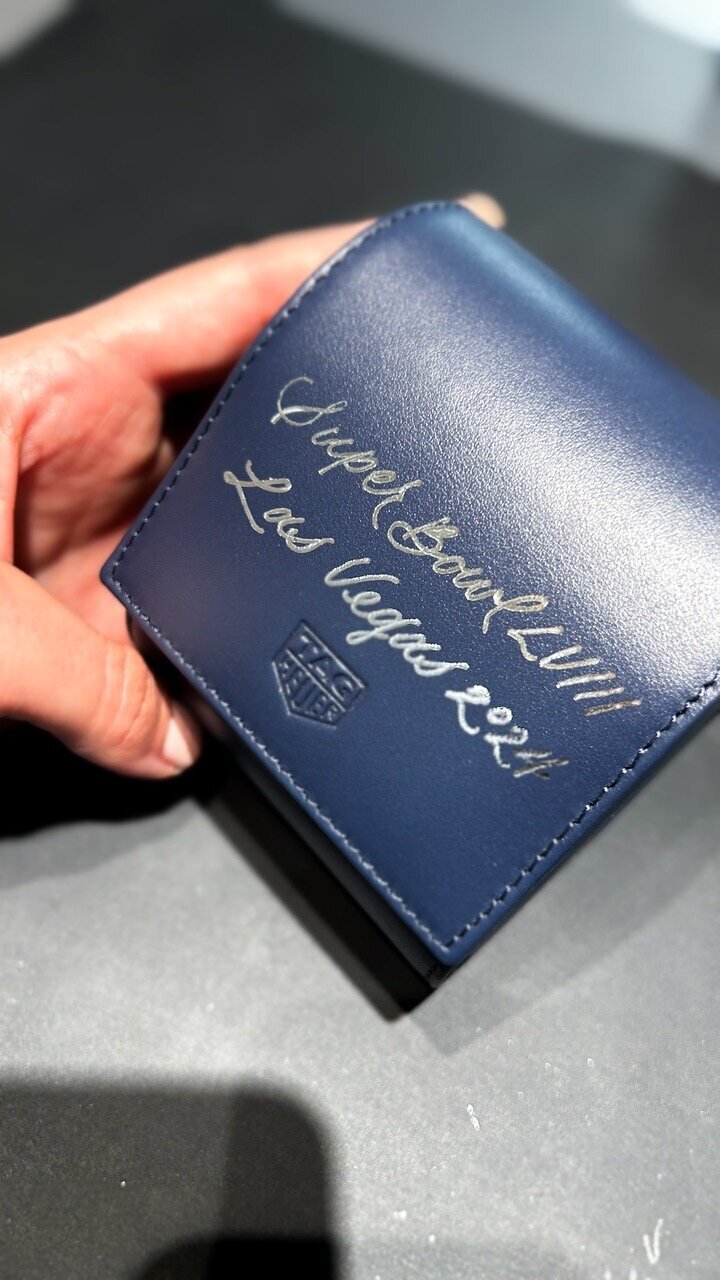 Super Bowl LVIII
Las Vegas 2024
TAG
HEUER